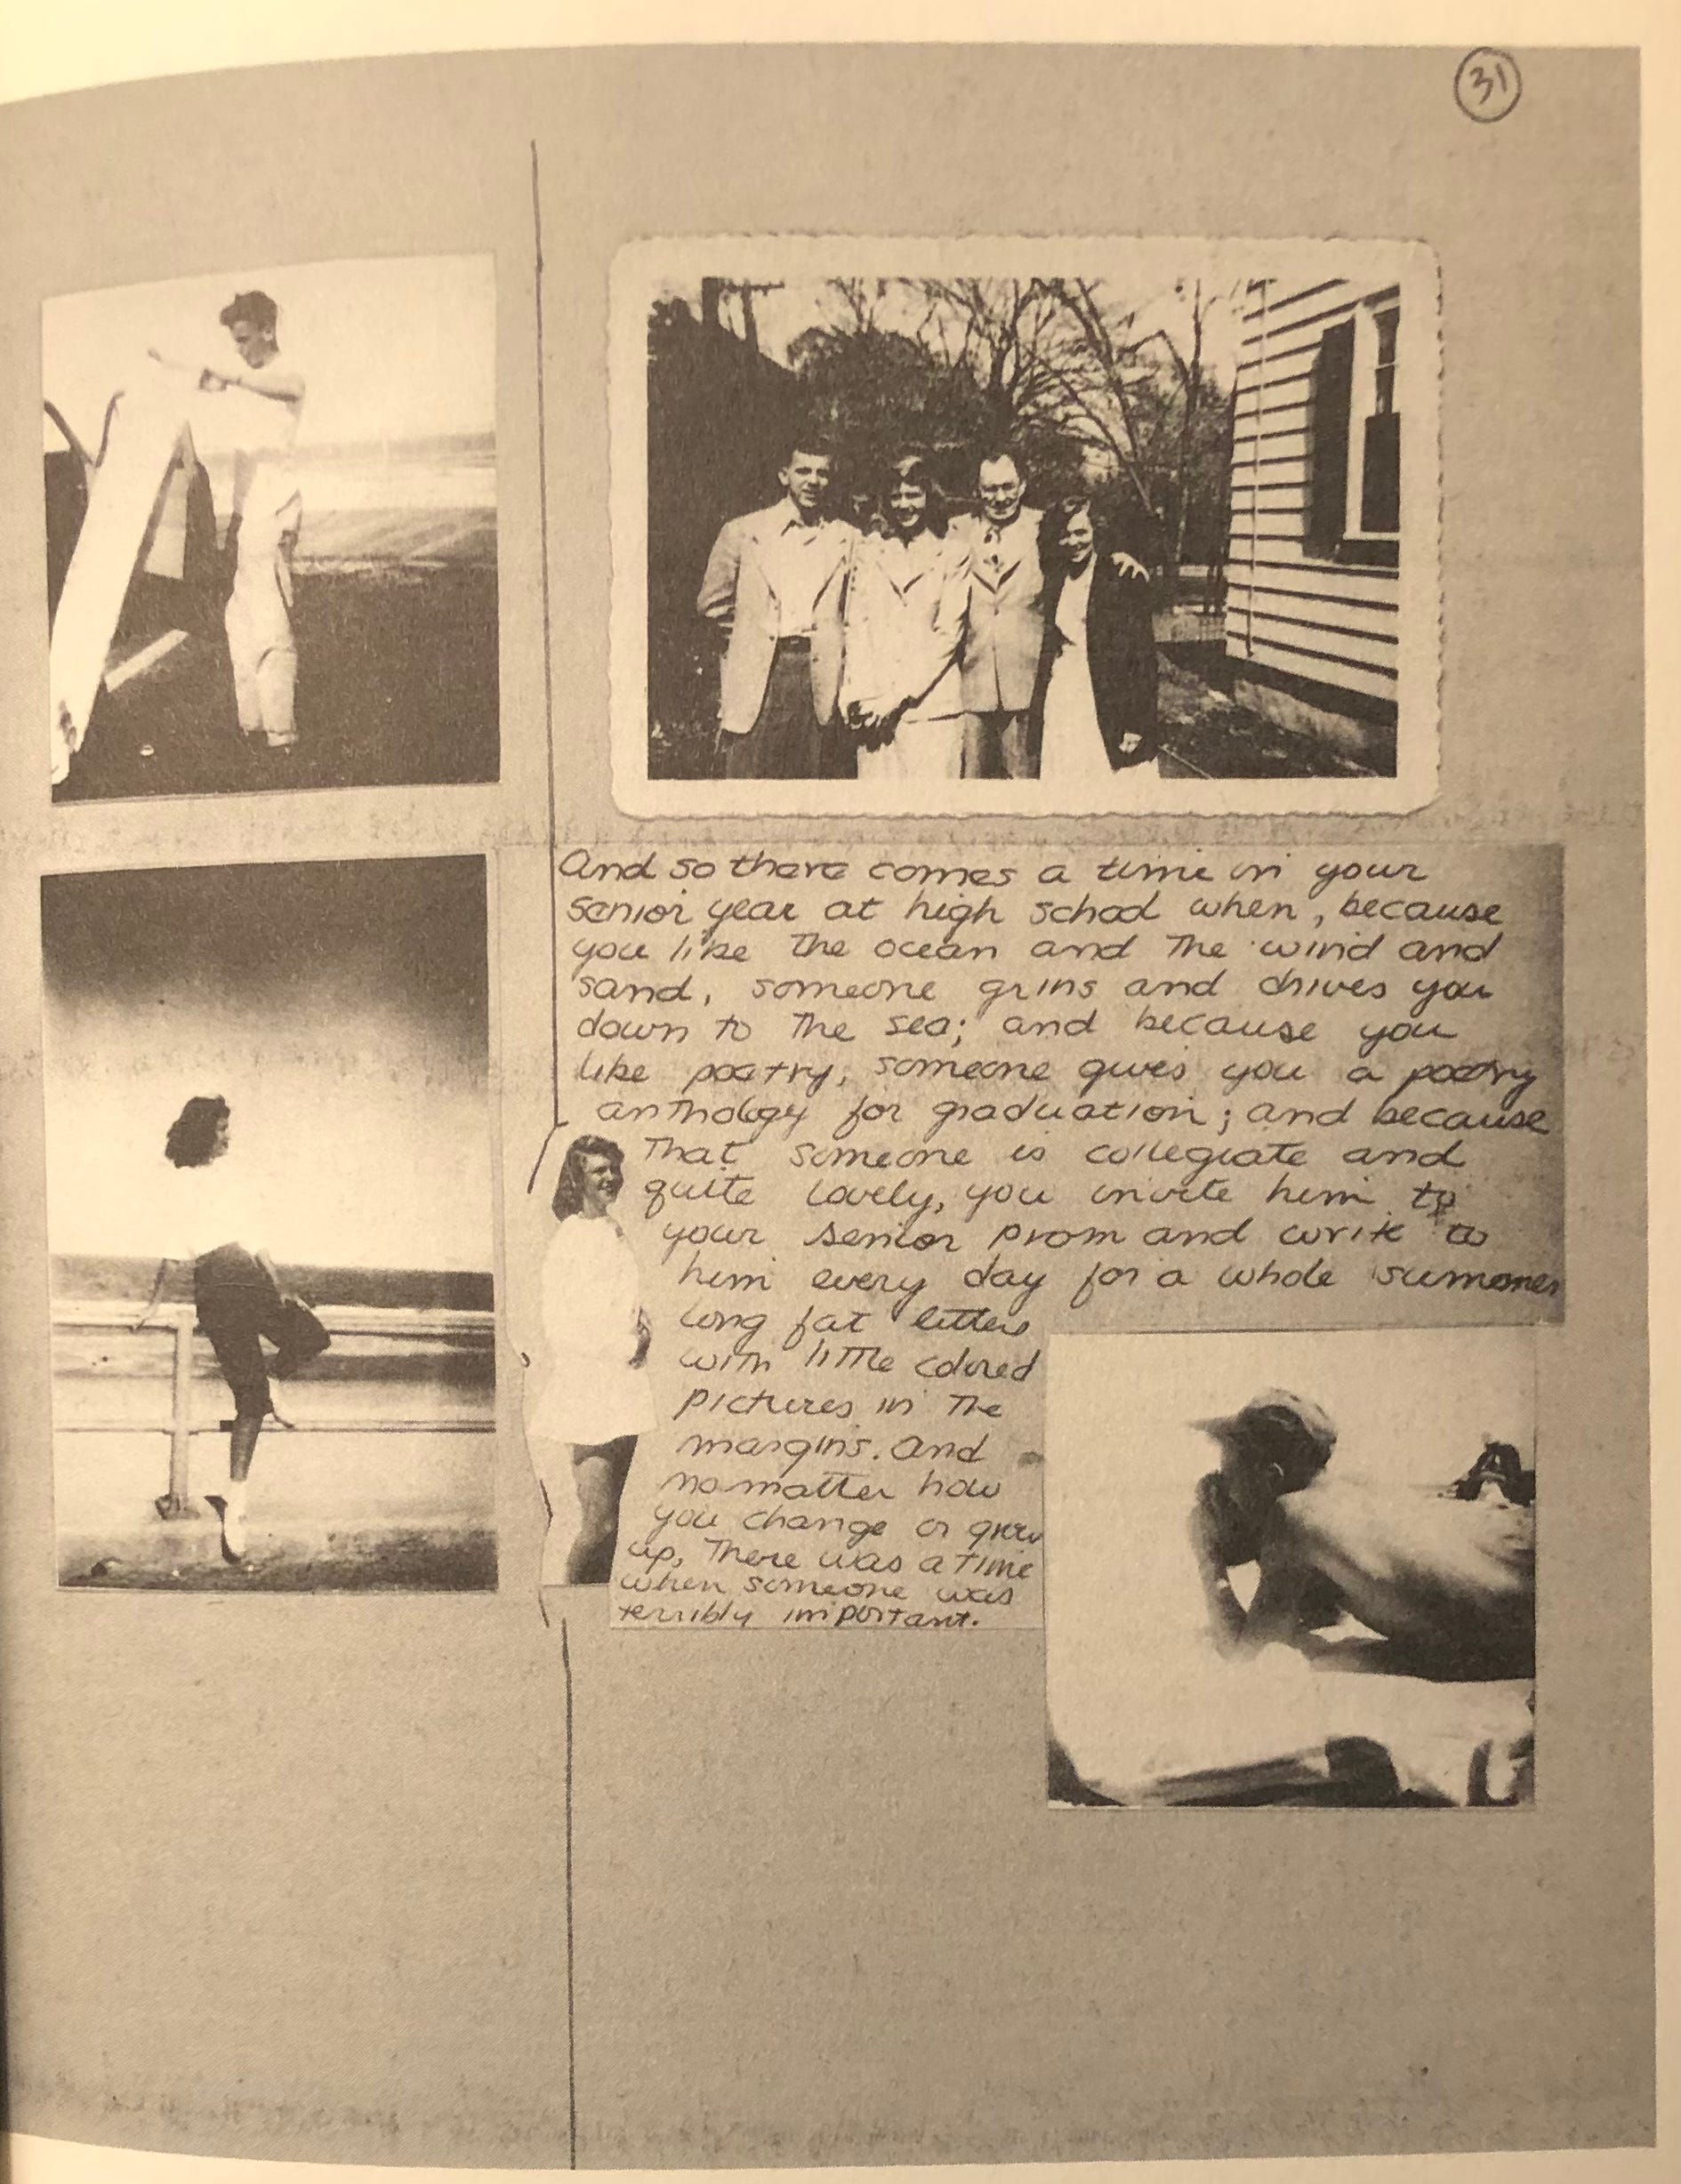 31
And so there comes a time in your
senior year at high school when, because
you like the ocean and the wind and
sand, someone grins and drives you
down to the sea; and because you
like poetry, someone gives you a poetry
anthology for graduation; and because
that someone is collegiate and
quite lovely, you invite him to
your senior prom and write to
him every day for a whole summer
long fat letters
with little colored
pictures in the
margins. And
no matter how
you change or grow
up, there was a time
when someone was
terribly important.